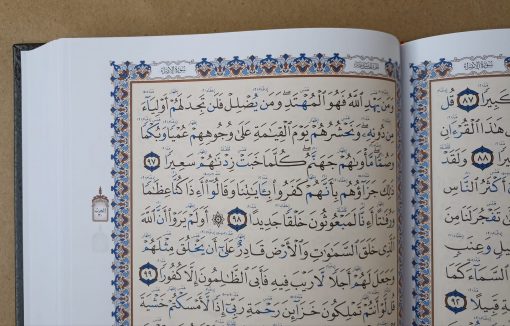 سورة الإسراء
كَبِيرًا ٨٧ قُل
هَٰذَا ٱلْقُرْءَانِ
٨٨ وَلَقَدْ
أَكْثَرُ ٱلنَّاسِ
تَفْجُرَ لَنَا مِنَ
وَعِنَبٍ
ٱلسَّمَآءَ كَمَا
قَبِيلًا ٩٢
سورة الإسراء
وَمَن يَهْدِ ٱللَّهُ فَهُوَ ٱلْمُهْتَدِ ۖ وَمَن يُضْلِلْ فَلَن تَجِدَ لَهُمْ أَوْلِيَآءَ
مِن دُونِهِۦ ۖ وَنَحْشُرُهُمْ يَوْمَ ٱلْقِيَٰمَةِ عَلَىٰ وُجُوهِهِمْ عُمْيًا وَبُكْمًا
وَصُمًّا ۖ مَّأْوَىٰهُمْ جَهَنَّمُ ۖ كُلَّمَا خَبَتْ زِدْنَٰهُمْ سَعِيرًا ٩٧
ذَٰلِكَ جَزَآؤُهُم بِأَنَّهُمْ كَفَرُوا۟ بِـَٔايَٰتِنَا وَقَالُوٓا۟ أَءِذَا كُنَّا عِظَٰمًا
وَرُفَٰتًا أَءِنَّا لَمَبْعُوثُونَ خَلْقًا جَدِيدًا ٩٨ ۞ أَوَلَمْ يَرَوْا۟ أَنَّ ٱللَّهَ
ٱلَّذِى خَلَقَ ٱلسَّمَٰوَٰتِ وَٱلْأَرْضَ قَادِرٌ عَلَىٰٓ أَن يَخْلُقَ مِثْلَهُمْ
وَجَعَلَ لَهُمْ أَجَلًا لَّا رَيْبَ فِيهِ فَأَبَى ٱلظَّٰلِمُونَ إِلَّا كُفُورًا ٩٩
قُل لَّوْ أَنتُمْ تَمْلِكُونَ خَزَآئِنَ رَحْمَةِ رَبِّىٓ إِذًا لَّأَمْسَكْتُمْ خَشْيَةَ